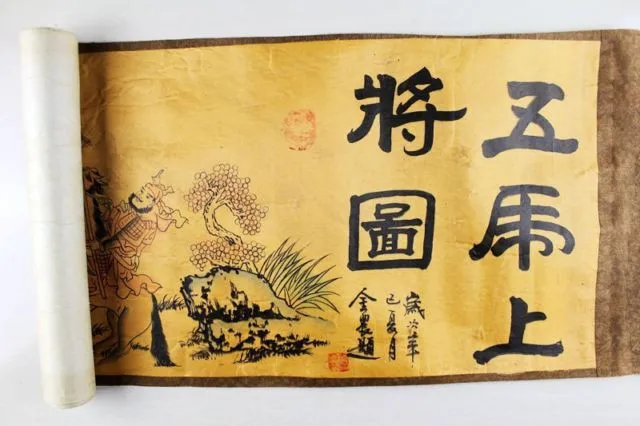 五虎上
將圖
歲次辛
巳夏月
金農題